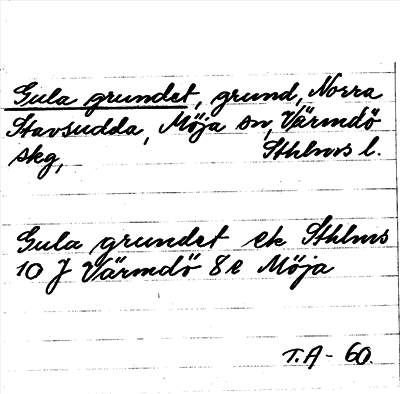 Gula grundet, grund, Norra
Stavsudda, Möja sn, Värmdö
skg, Sthlms l.
Gula grundet ek Sthlms
10 J Värmdö 8e Möja
T.A - 60.